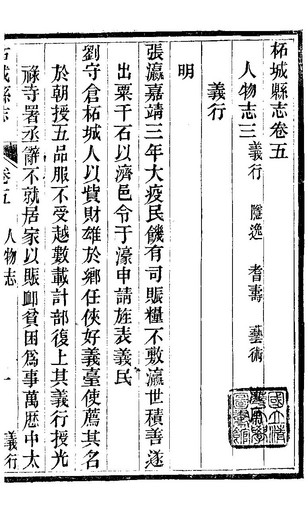 柘城縣志卷五
人物志三 義行 隱逸 耆壽 藝術
義行
明
張瀛嘉靖三年大疫民饑有司賑糧不敷瀛世積善遂
出粟千石以濟邑令于濠申請旌表義民
劉守倉柘城人以貲財雄於鄉任俠好義臺使薦其名
於朝授五品服不受越數載計部復上其義行授光
祿寺署丞辭不就居家以賑卹貧困為事萬歷中太
柘城縣志 卷五 人物志 一 義行